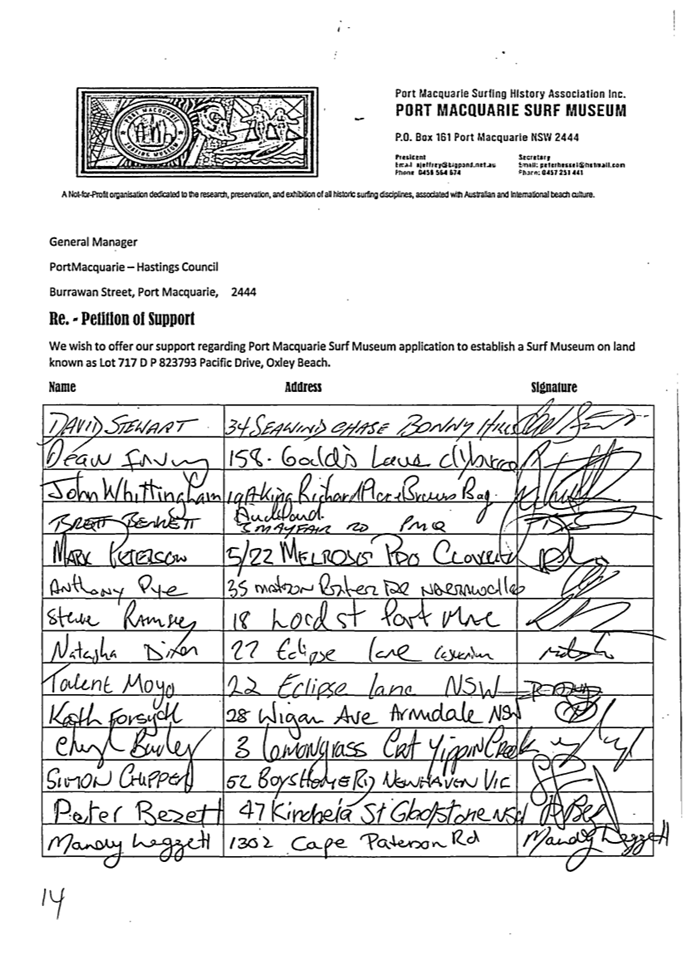 PORT MACQUARIE
SURFING MUSEUM
Port Macquarie Surfing History Association Inc.
PORT MACQUARIE SURF MUSEUM
P.O. Box 161 Port Macquarie NSW 2444
President Secretary
Email ajeffrey@bigpond.net.au Email: peterhessel@hotmail.com
Phone 0458 564 574 Phone: 0457 251 441
A Not-for-Profit organisation dedicated to the research, preservation, and exhibition of all historic surfing disciplines, associated with Australian and International beach culture.
General Manager
PortMacquarie – Hastings Council
Burrawan Street, Port Macquarie, 2444
Re. - Petition of Support
We wish to offer our support regarding Port Macquarie Surf Museum application to establish a Surf Museum on land
known as Lot 717 D P 823793 Pacific Drive, Oxley Beach.
Name Address Signature
DAVID STEWART 34 SEAWIND CHASE BONNY HILLS
Dean 158
John Whittingham King Richard Place Browns Bay
Auckland
BRETT BENNETT MAYFAIR RD PMQ
MARK PETERSON 5/22 MELROSE
Anthony Pye 35
Steve Ramsey 18 Lord st Port Mac
Natasha Dixon 27 Eclipse lane
Talent Moyo 22 Eclipse lane NSW
Kath Forsyth 28 Wigan Ave Armidale NSW
Cheryl 3 Lemongrass Crt Yippin Creek
SIMON CHIPPER 52 BOYS HOME RD NEWHAVEN VIC
Peter Bezett 47 Kinchela St Gladstone NSW
Mandy Leggett 1302 Cape Paterson Rd Mandy Leggett
14